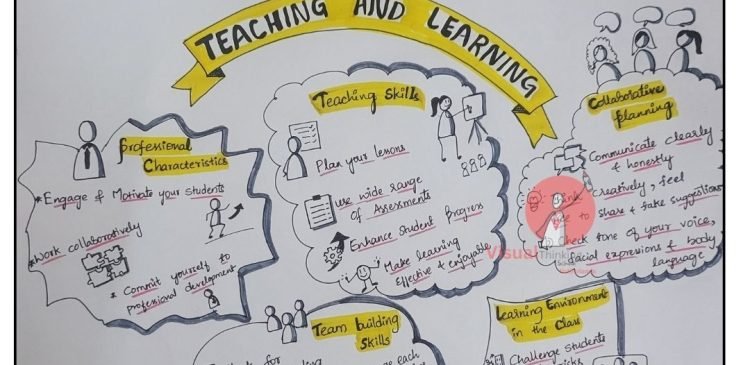 TEACHING AND LEARNING
Professional
Characteristics
* Engage & Motivate your students
* Work collaboratively
* Commit yourself to
professional development
Teaching Skills
Plan your lessons
Use wide range
of Assessments
Enhance Student Progress
Make learning
Effective & enjoyable
Collaborative
planning
Communicate clearly
& honestly
Think Creatively, feel
free to share & take suggestions
Check tone of your voice,
facial expressions & body
language
Visual Thinking
Team building
Skills
for
each
Learning Environment
in the Class
Challenge Students